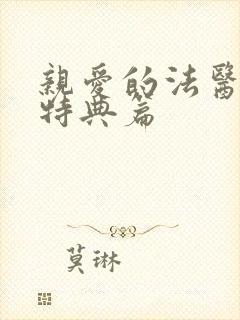 親愛的法醫
特典篇
莫琳